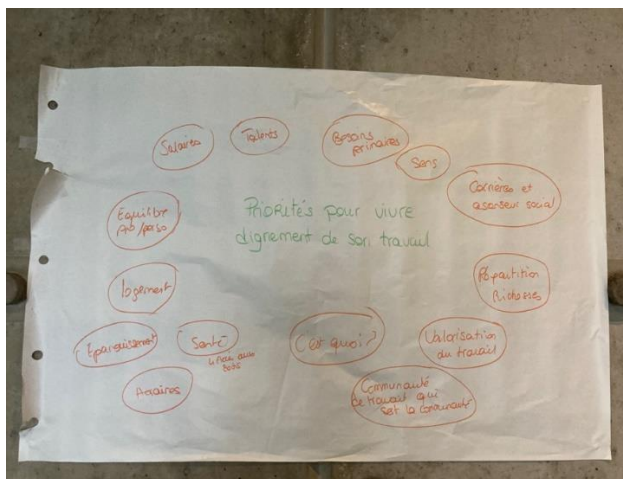 Salaires
Talents
Besoins
primaires
Sens
Carrières et
ascenseur social
Equilibre
pro/perso
Priorités pour vivre
dignement de son travail
logement
Répartition
Richesses
Epanouissement
Santé
C'est quoi?
Valorisation
du travail
Horaires
Communauté
de travail qui
sert la communauté